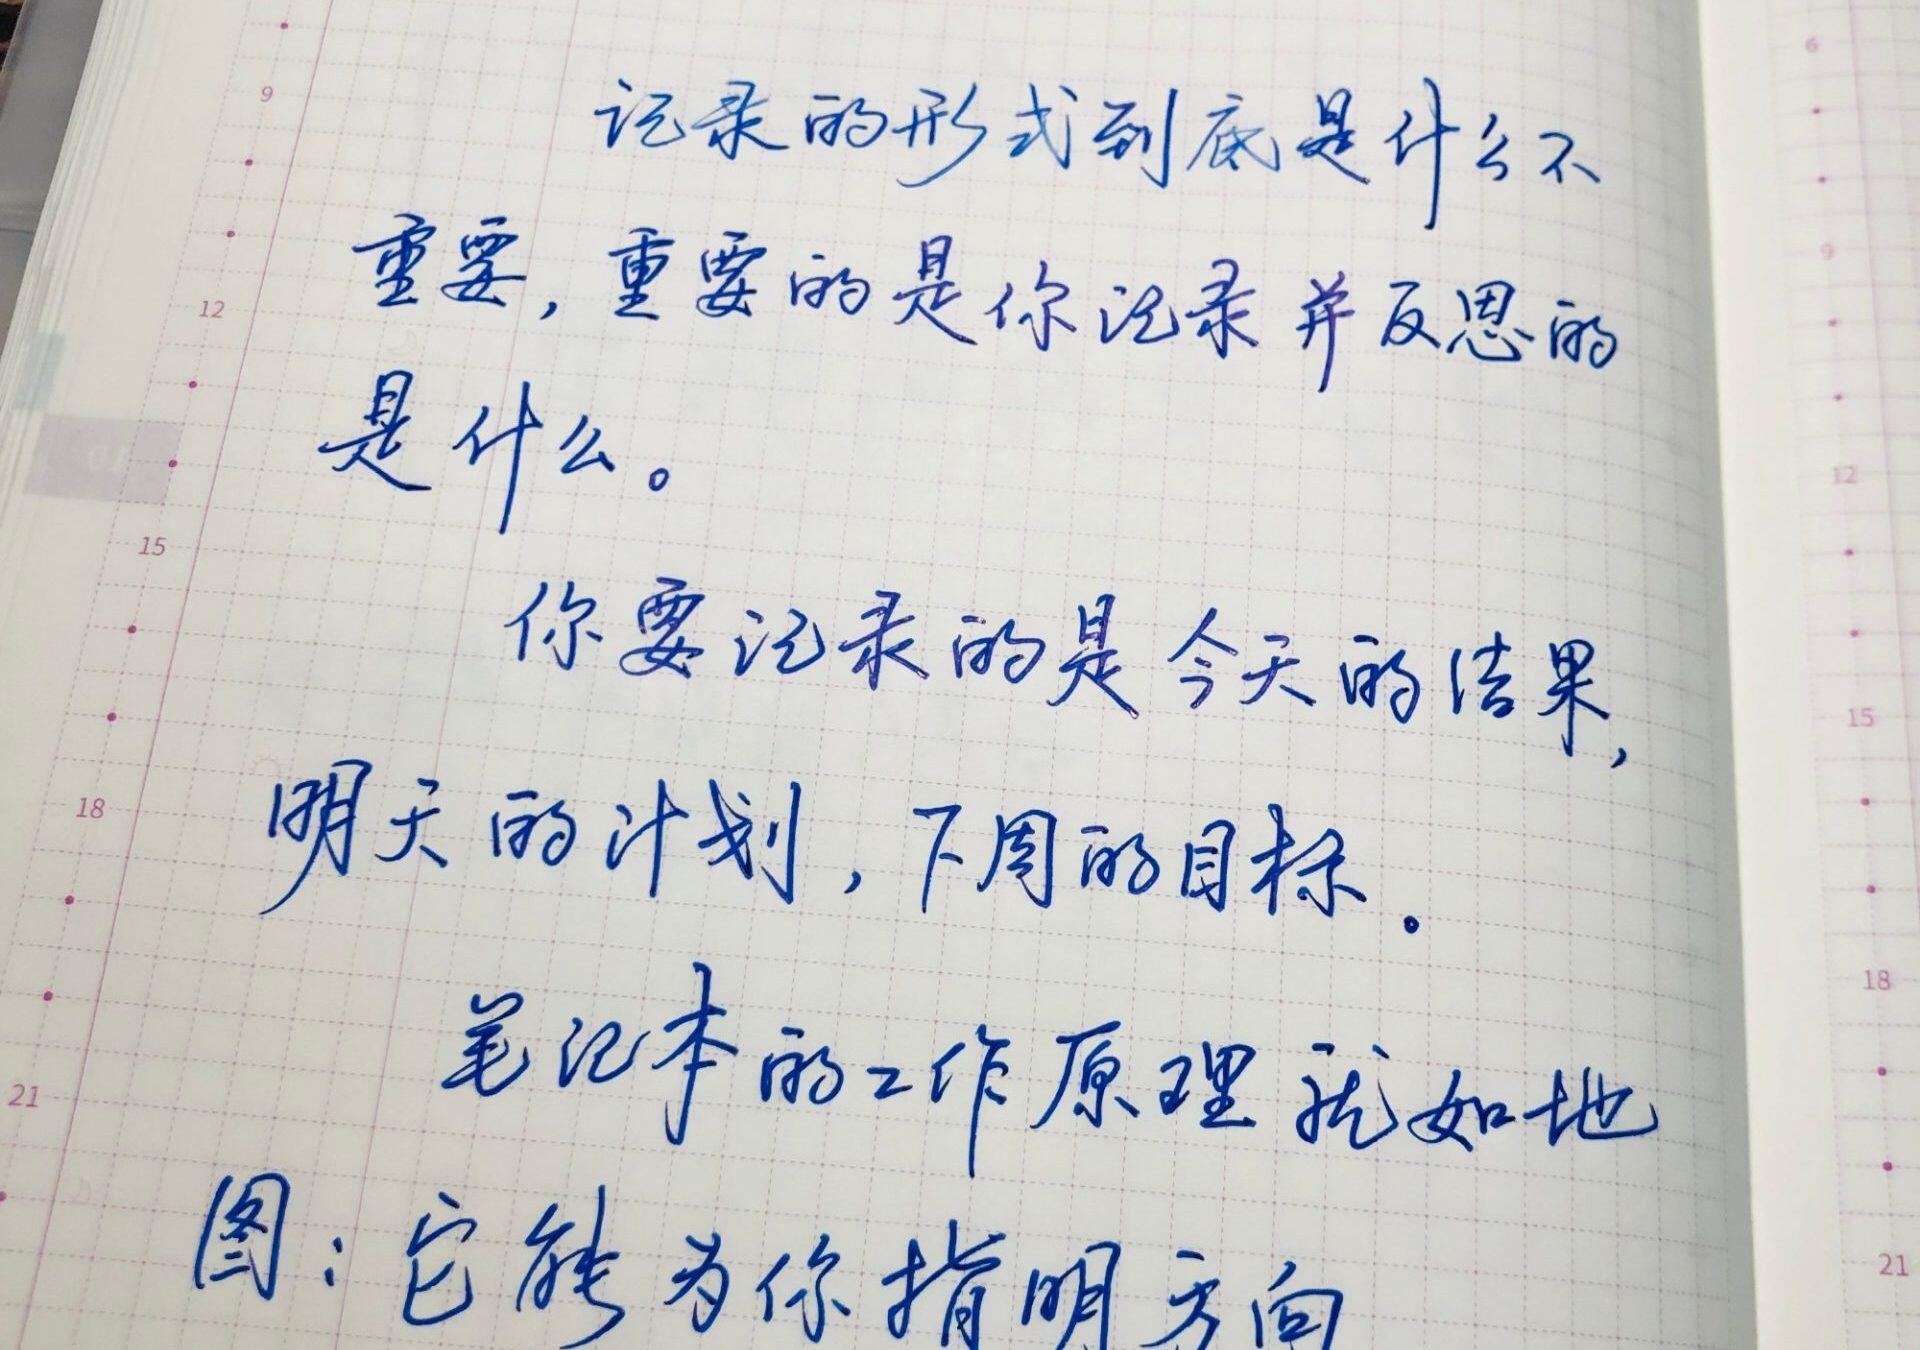 记录的形式到底是什么不
重要，重要的是你记录并反思的
是什么。
你要记录的是今天的结果，
明天的计划，下周的目标.
笔记本的工作原理就如地
图：它能为你指明方向
9
12
15
18
21
6
9
12
15
18
21